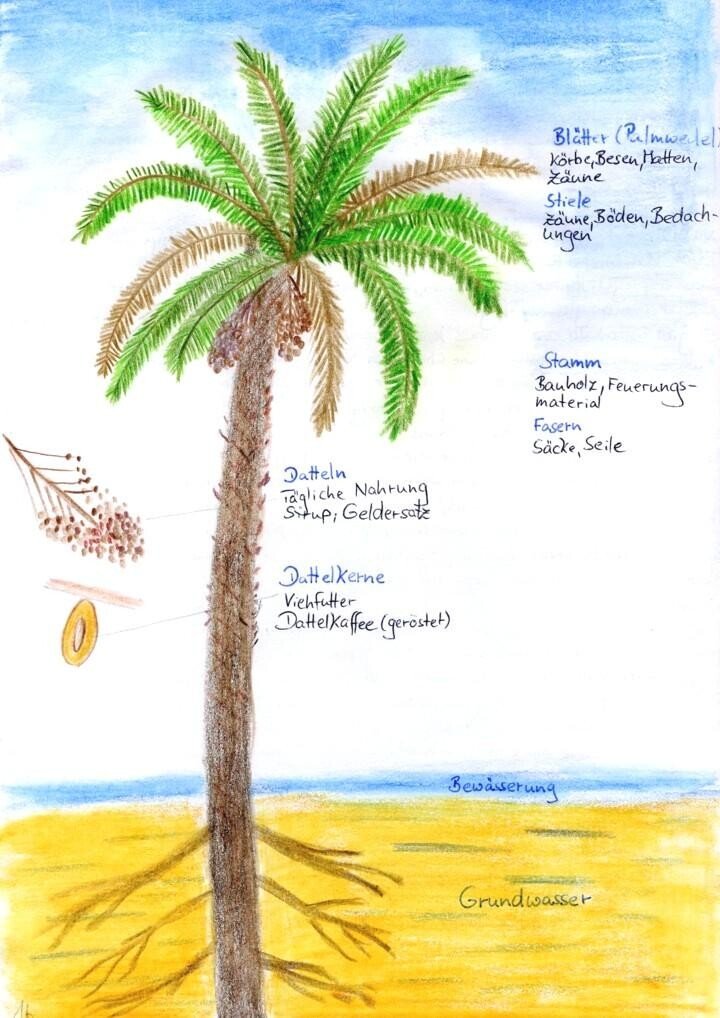 Blätter (Palmwedel)
Körbe, Besen, Matten,
Zäune
Stiele
Zäune, Böden, Bedach-
ungen
Stamm
Bauholz, Feuerungs-
material
Fasern
Säcke, Seile
Datteln
Tägliche Nahrung
Sirup, Geldersatz
Dattelkerne
Viehfutter
Dattelkaffee (geröstet)
Bewässerung
Grundwasser